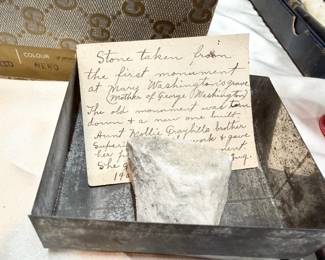 COLOUR
Stone taken from
the first monument
at Mary Washington's grave
(Mother of George Washington)
The old monument was torn
down & a new one built.
Aunt Mollie brother
work & gave
her
She
19